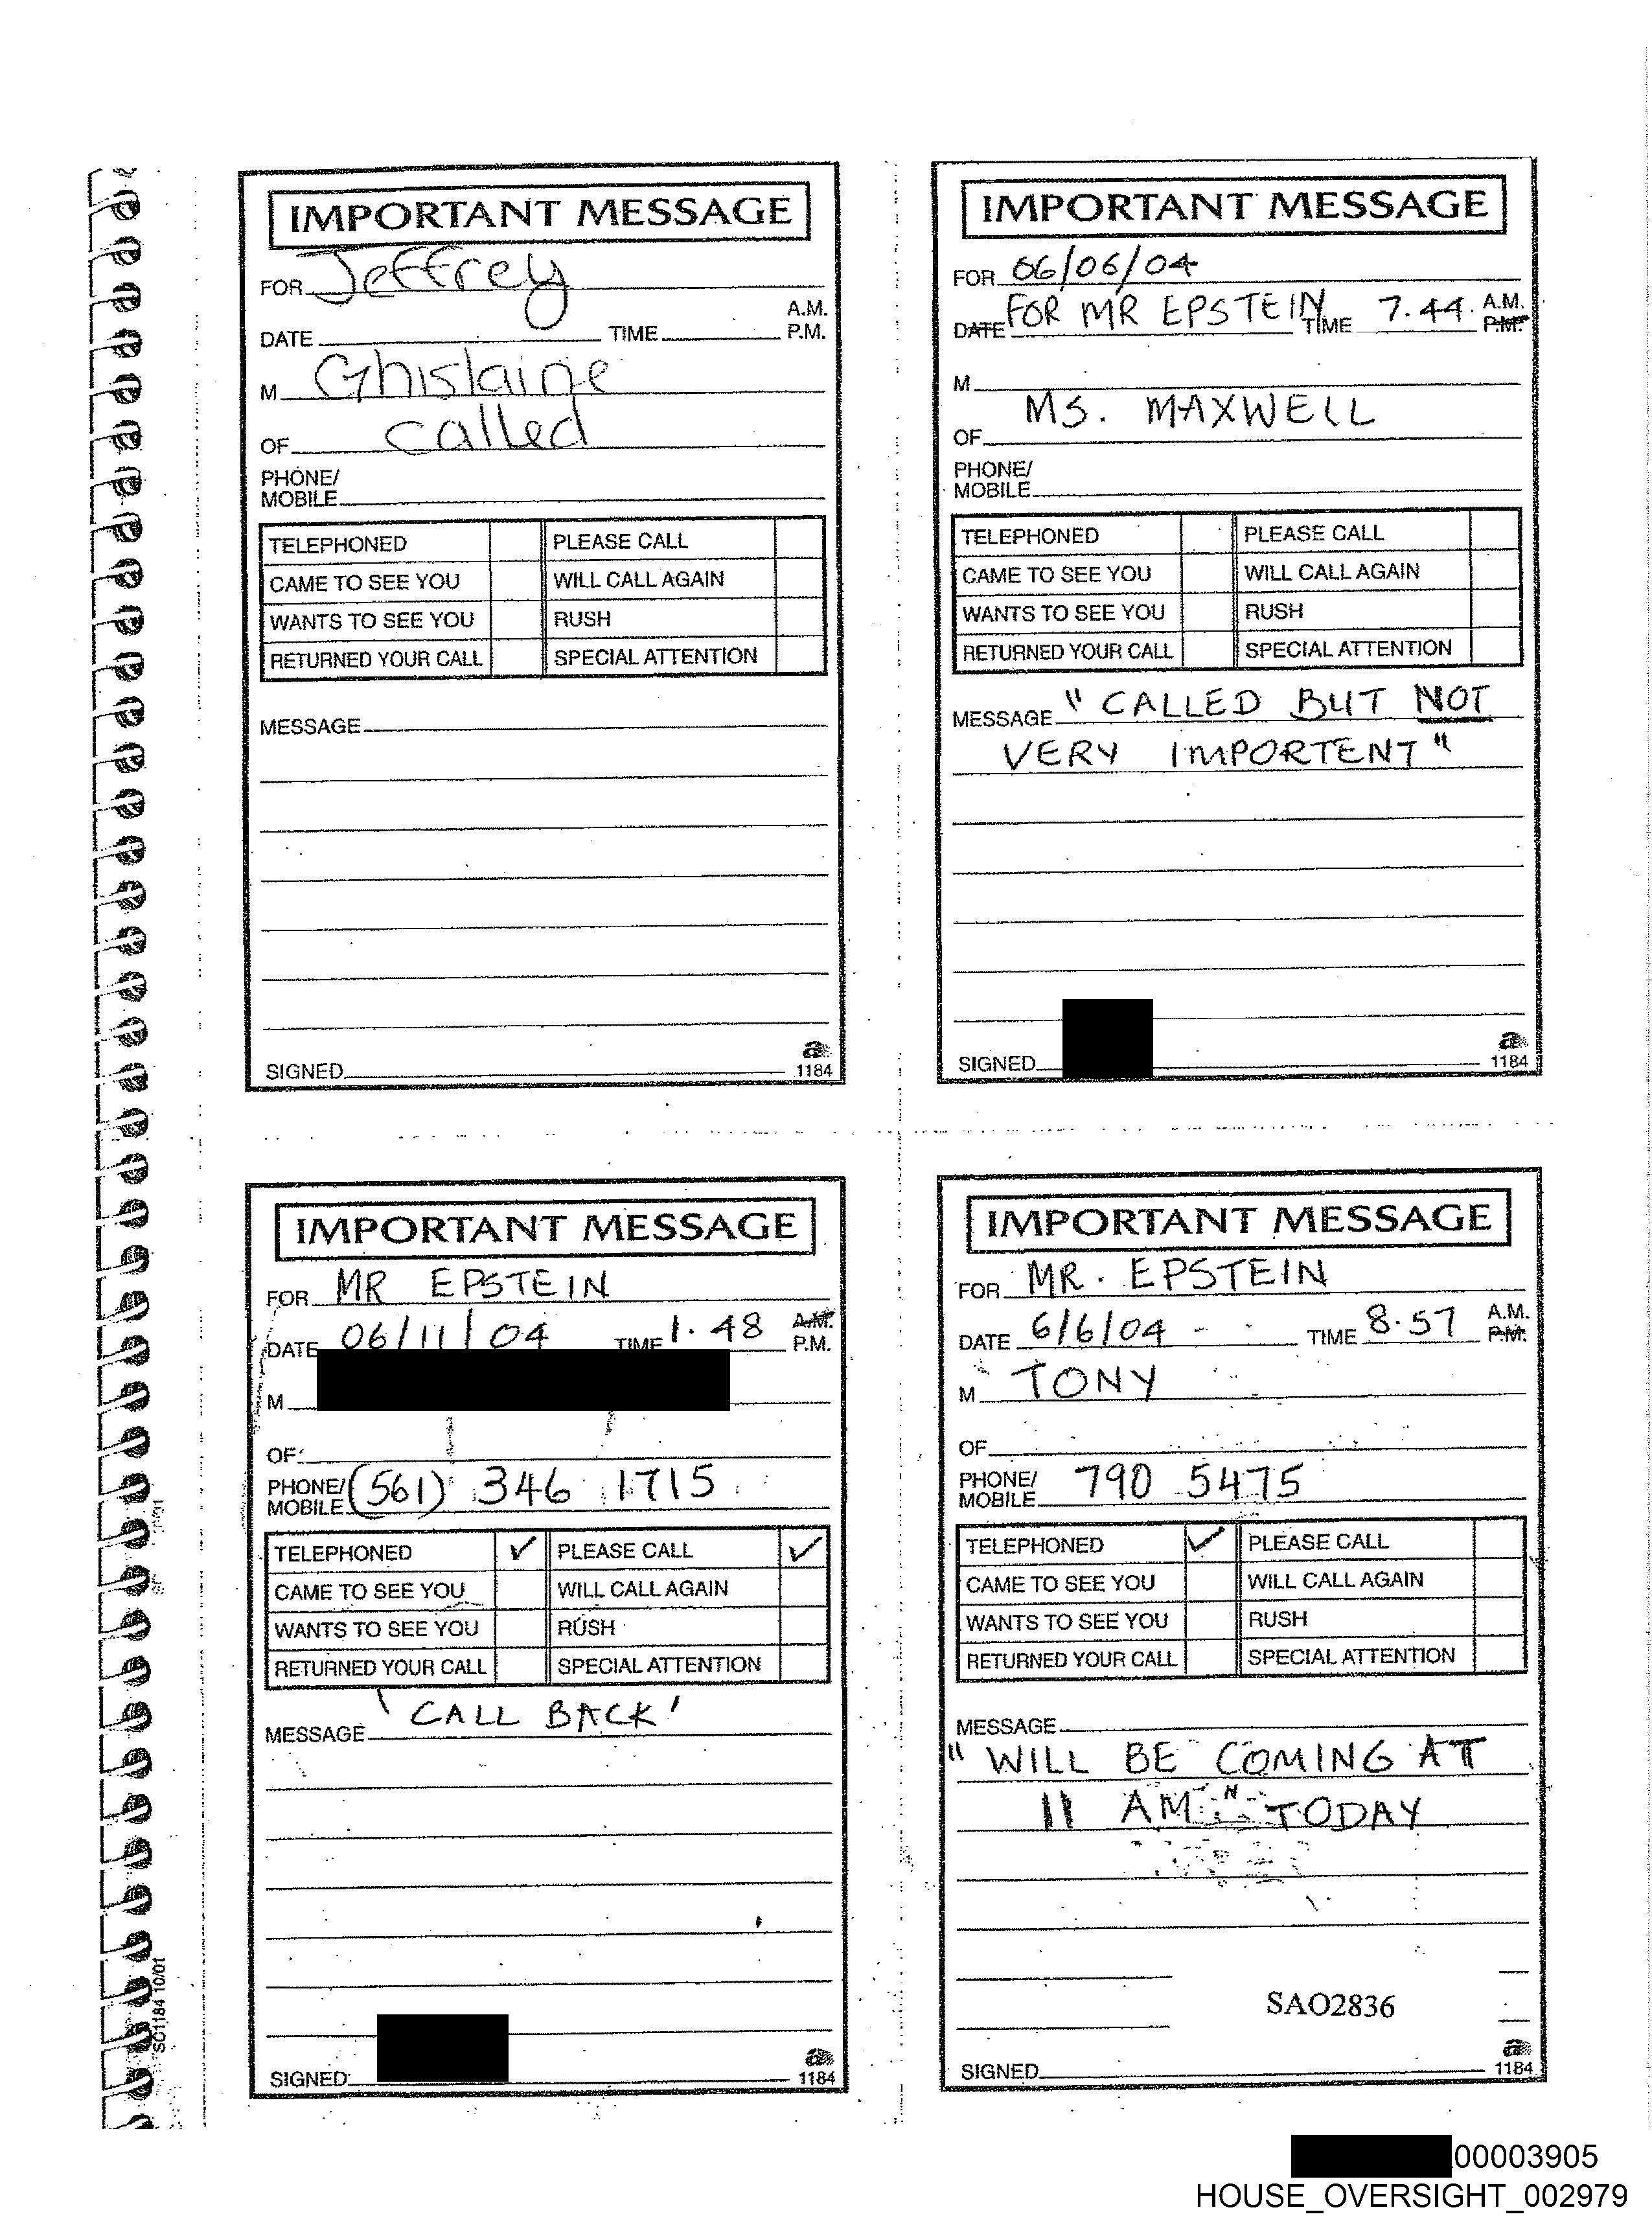 IMPORTANT MESSAGE
FOR Jeffrey
A.M.
DATE TIME P.M.
M Ghislaine
OF called
PHONE/
MOBILE
TELEPHONED PLEASE CALL
CAME TO SEE YOU WILL CALL AGAIN
WANTS TO SEE YOU RUSH
RETURNED YOUR CALL SPECIAL ATTENTION
MESSAGE
SIGNED
1184
IMPORTANT MESSAGE
FOR 06/06/04
DATE FOR MR EPSTEIN TIME 7.44. A.M.
P.M.
M
MS. MAXWELL
OF
PHONE/
MOBILE
TELEPHONED PLEASE CALL
CAME TO SEE YOU WILL CALL AGAIN
WANTS TO SEE YOU RUSH
RETURNED YOUR CALL SPECIAL ATTENTION
MESSAGE "CALLED BUT NOT
VERY IMPORTENT"
SIGNED
a
1184
IMPORTANT MESSAGE
FOR MR EPSTEIN
A.M.
DATE 06/11/04 TIME 1.48 P.M.
M
OF
PHONE/
MOBILE (561) 346 1715
TELEPHONED ✓ PLEASE CALL ✓
CAME TO SEE YOU WILL CALL AGAIN
WANTS TO SEE YOU RUSH
RETURNED YOUR CALL SPECIAL ATTENTION
MESSAGE 'CALL BACK'
SIGNED
a
1184
IMPORTANT MESSAGE
FOR MR. EPSTEIN
A.M.
DATE 6/6/04 - - TIME 8.57 P.M.
M TONY
OF
PHONE/
MOBILE 790 5475
TELEPHONED ✓ PLEASE CALL
CAME TO SEE YOU WILL CALL AGAIN
WANTS TO SEE YOU RUSH
RETURNED YOUR CALL SPECIAL ATTENTION
MESSAGE
"WILL BE COMING AT
11 AM" TODAY
SAO2836
SIGNED
a
1184
SC1184 10/01
00003905
HOUSE_OVERSIGHT_002979